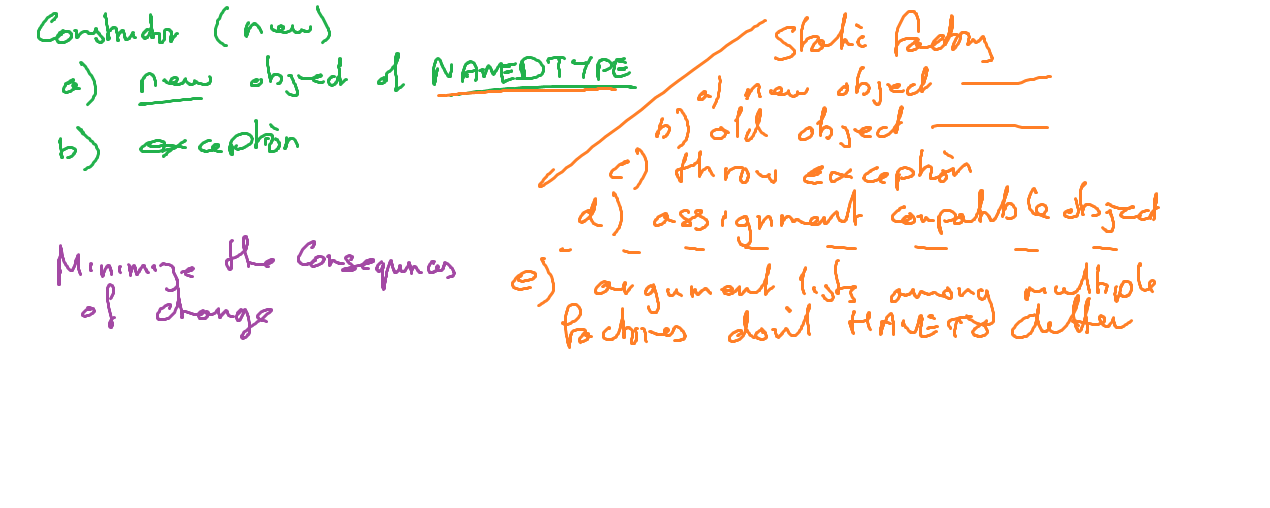 Constructor (new)
a) new object of NAMEDTYPE
b) exception
Minimize the consequences
of change
Static factory
a) new object
b) old object
c) throw exception
d) assignment compatible object
e) argument lists among multiple
factories don't HAVE TO differ